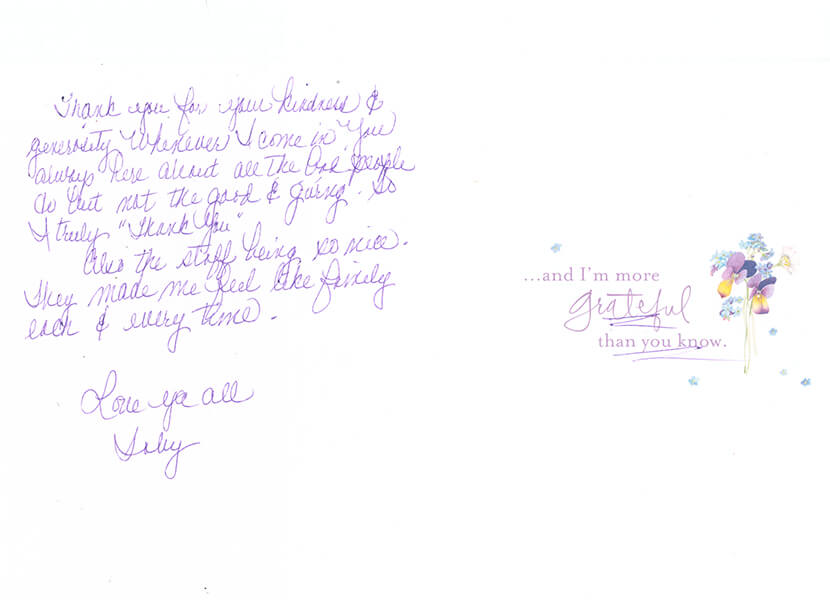 Thank you for your kindness &
generosity Whenever I come in. You
always here about all the bad people
do but not the good & giving. So
I truly "Thank You"
Also the staff being so nice.
They made me feel like family
each & every time.
Love ya all
Toby
...and I'm more
grateful
than you know.